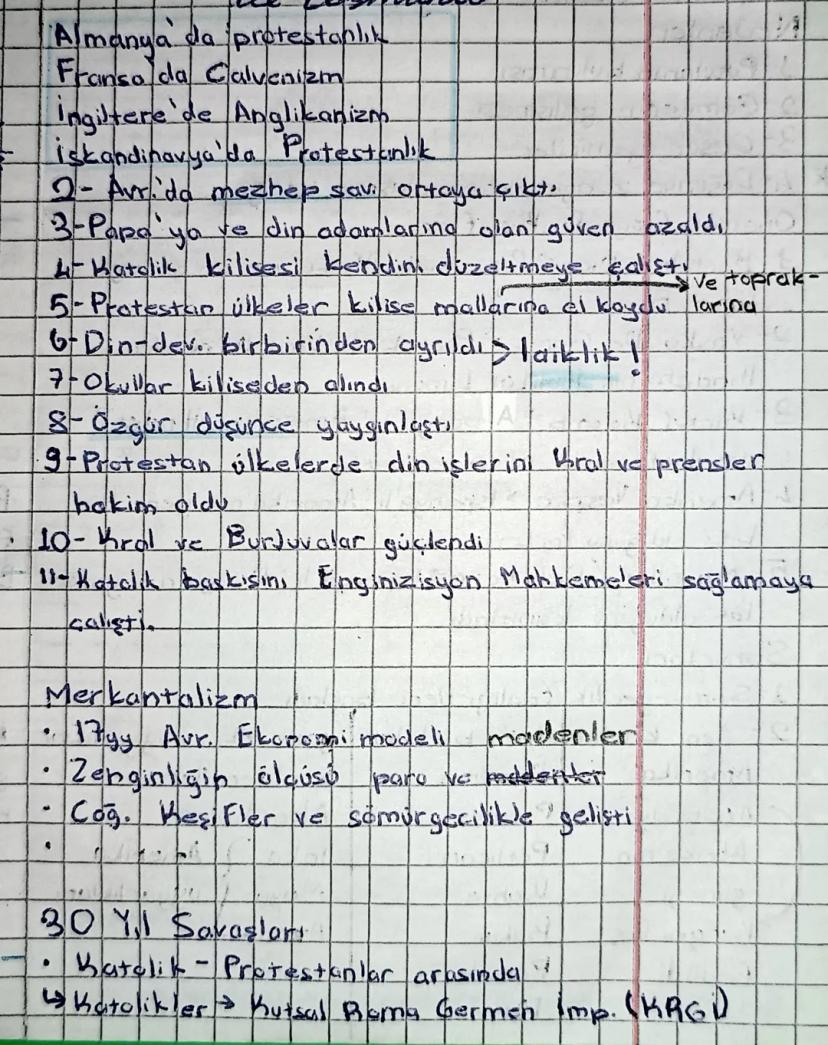 Almanya'da protestanlık
Fransa'da Calvenizm
İngiltere'de Anglikanizm
İskandinavya'da Protestanlık
2- Avr.'da mezhep sav. ortaya çıktı.
3-Papa'ya ve din adamlarına olan güven azaldı
4- Katolik kilisesi kendini düzeltmeye çalıştı
5- Protestan ülkeler kilise mallarına el koydu ve topraklarına
6- Din-dev. birbirinden ayrıldı > laiklik!
7- Okullar kiliseden alındı
8- Özgür düşünce yaygınlaştı
9- Protestan ülkelerde din işlerini Kral ve prensler
hakim oldu
10- Kral ve Burjuvalar güçlendi
11- Katolik baskısını Enginizisyon Mahkemeleri sağlamaya
çalıştı.
Merkantalizm
• 17yy Avr. Ekonomi modeli madenler
• Zenginliğin ölçüsü para ve madenler
• Coğ. Keşifler ve sömürgecilikle gelişti
•
30 Yıl Savaşları
• Katolik - Protestanlar arasında
↳ Katolikler → Kutsal Roma Germen İmp. (KRGİ)